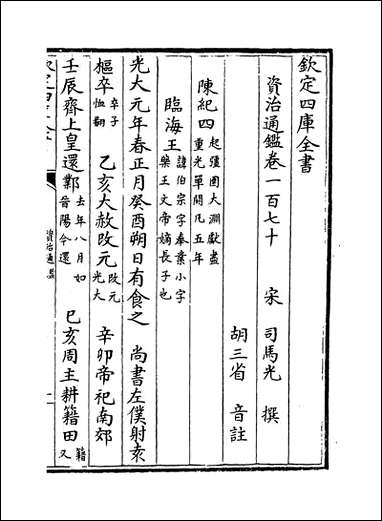 欽定四庫全書
資治通鑑卷一百七十 宋 司馬光 撰
胡三省 音註
陳紀四 起彊圉大淵獻盡重光單閼凡五年
臨海王 諱伯宗字奉業小字樂王文帝嫡長子也
光大元年春正月癸酉朔日有食之 尚書左僕射袁
樞卒 卒子恤翻 乙亥大赦改元 改元光大 辛卯帝祀南郊
壬辰齊上皇還鄴 去年八月如晉陽今還 己亥周主耕籍田 籍又
資治通鑑